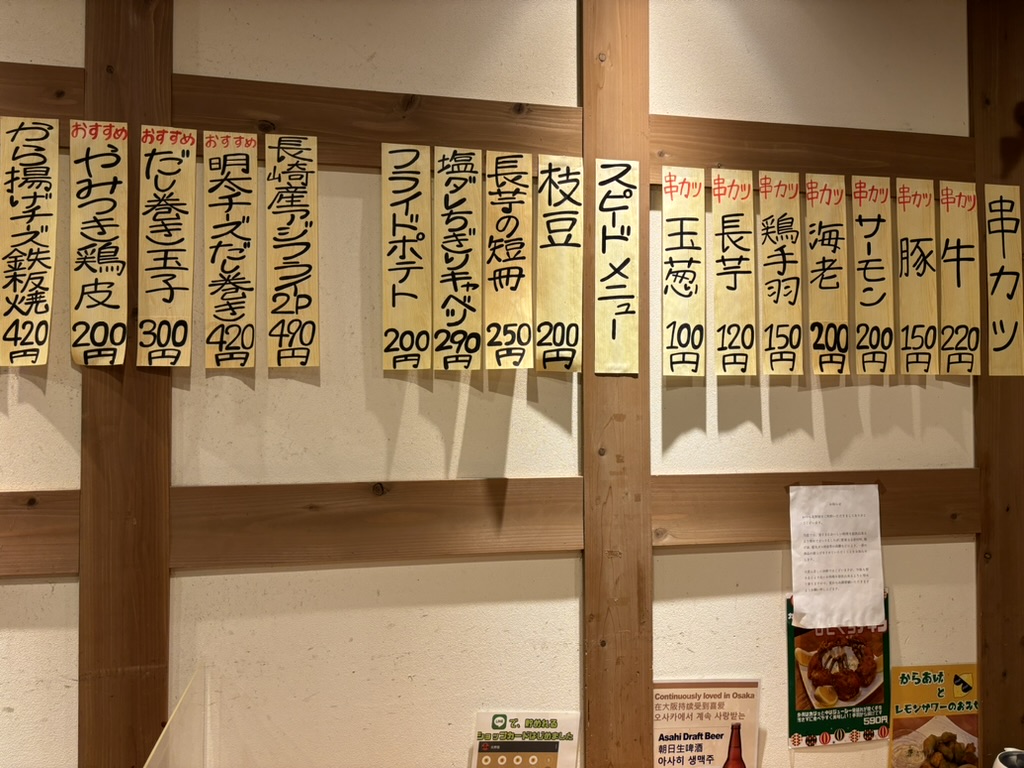 串カツ
串カツ 牛 220円
串カツ 豚 150円
串カツ サーモン 200円
串カツ 海老 200円
串カツ 鶏手羽 150円
串カツ 長芋 120円
串カツ 玉葱 100円
スピードメニュー
枝豆 200円
長芋の短冊 250円
塩ダレちぎりキャベツ 290円
フライドポテト 200円
長崎産アジフライ2P 490円
おすすめ 明太チーズだし巻き 420円
おすすめ だし巻き玉子 300円
おすすめ やみつき鶏皮 200円
から揚げチーズ鉄板焼 420円
お知らせ
590円
からあげ
と
レモンサワーのおみせ
で、貯めれる
ショップカードはじめました
Continuously loved in Osaka
在大阪持续受到喜爱
오사카에서 계속 사랑받는
Asahi Draft Beer
朝日生啤酒
아사히 생맥주